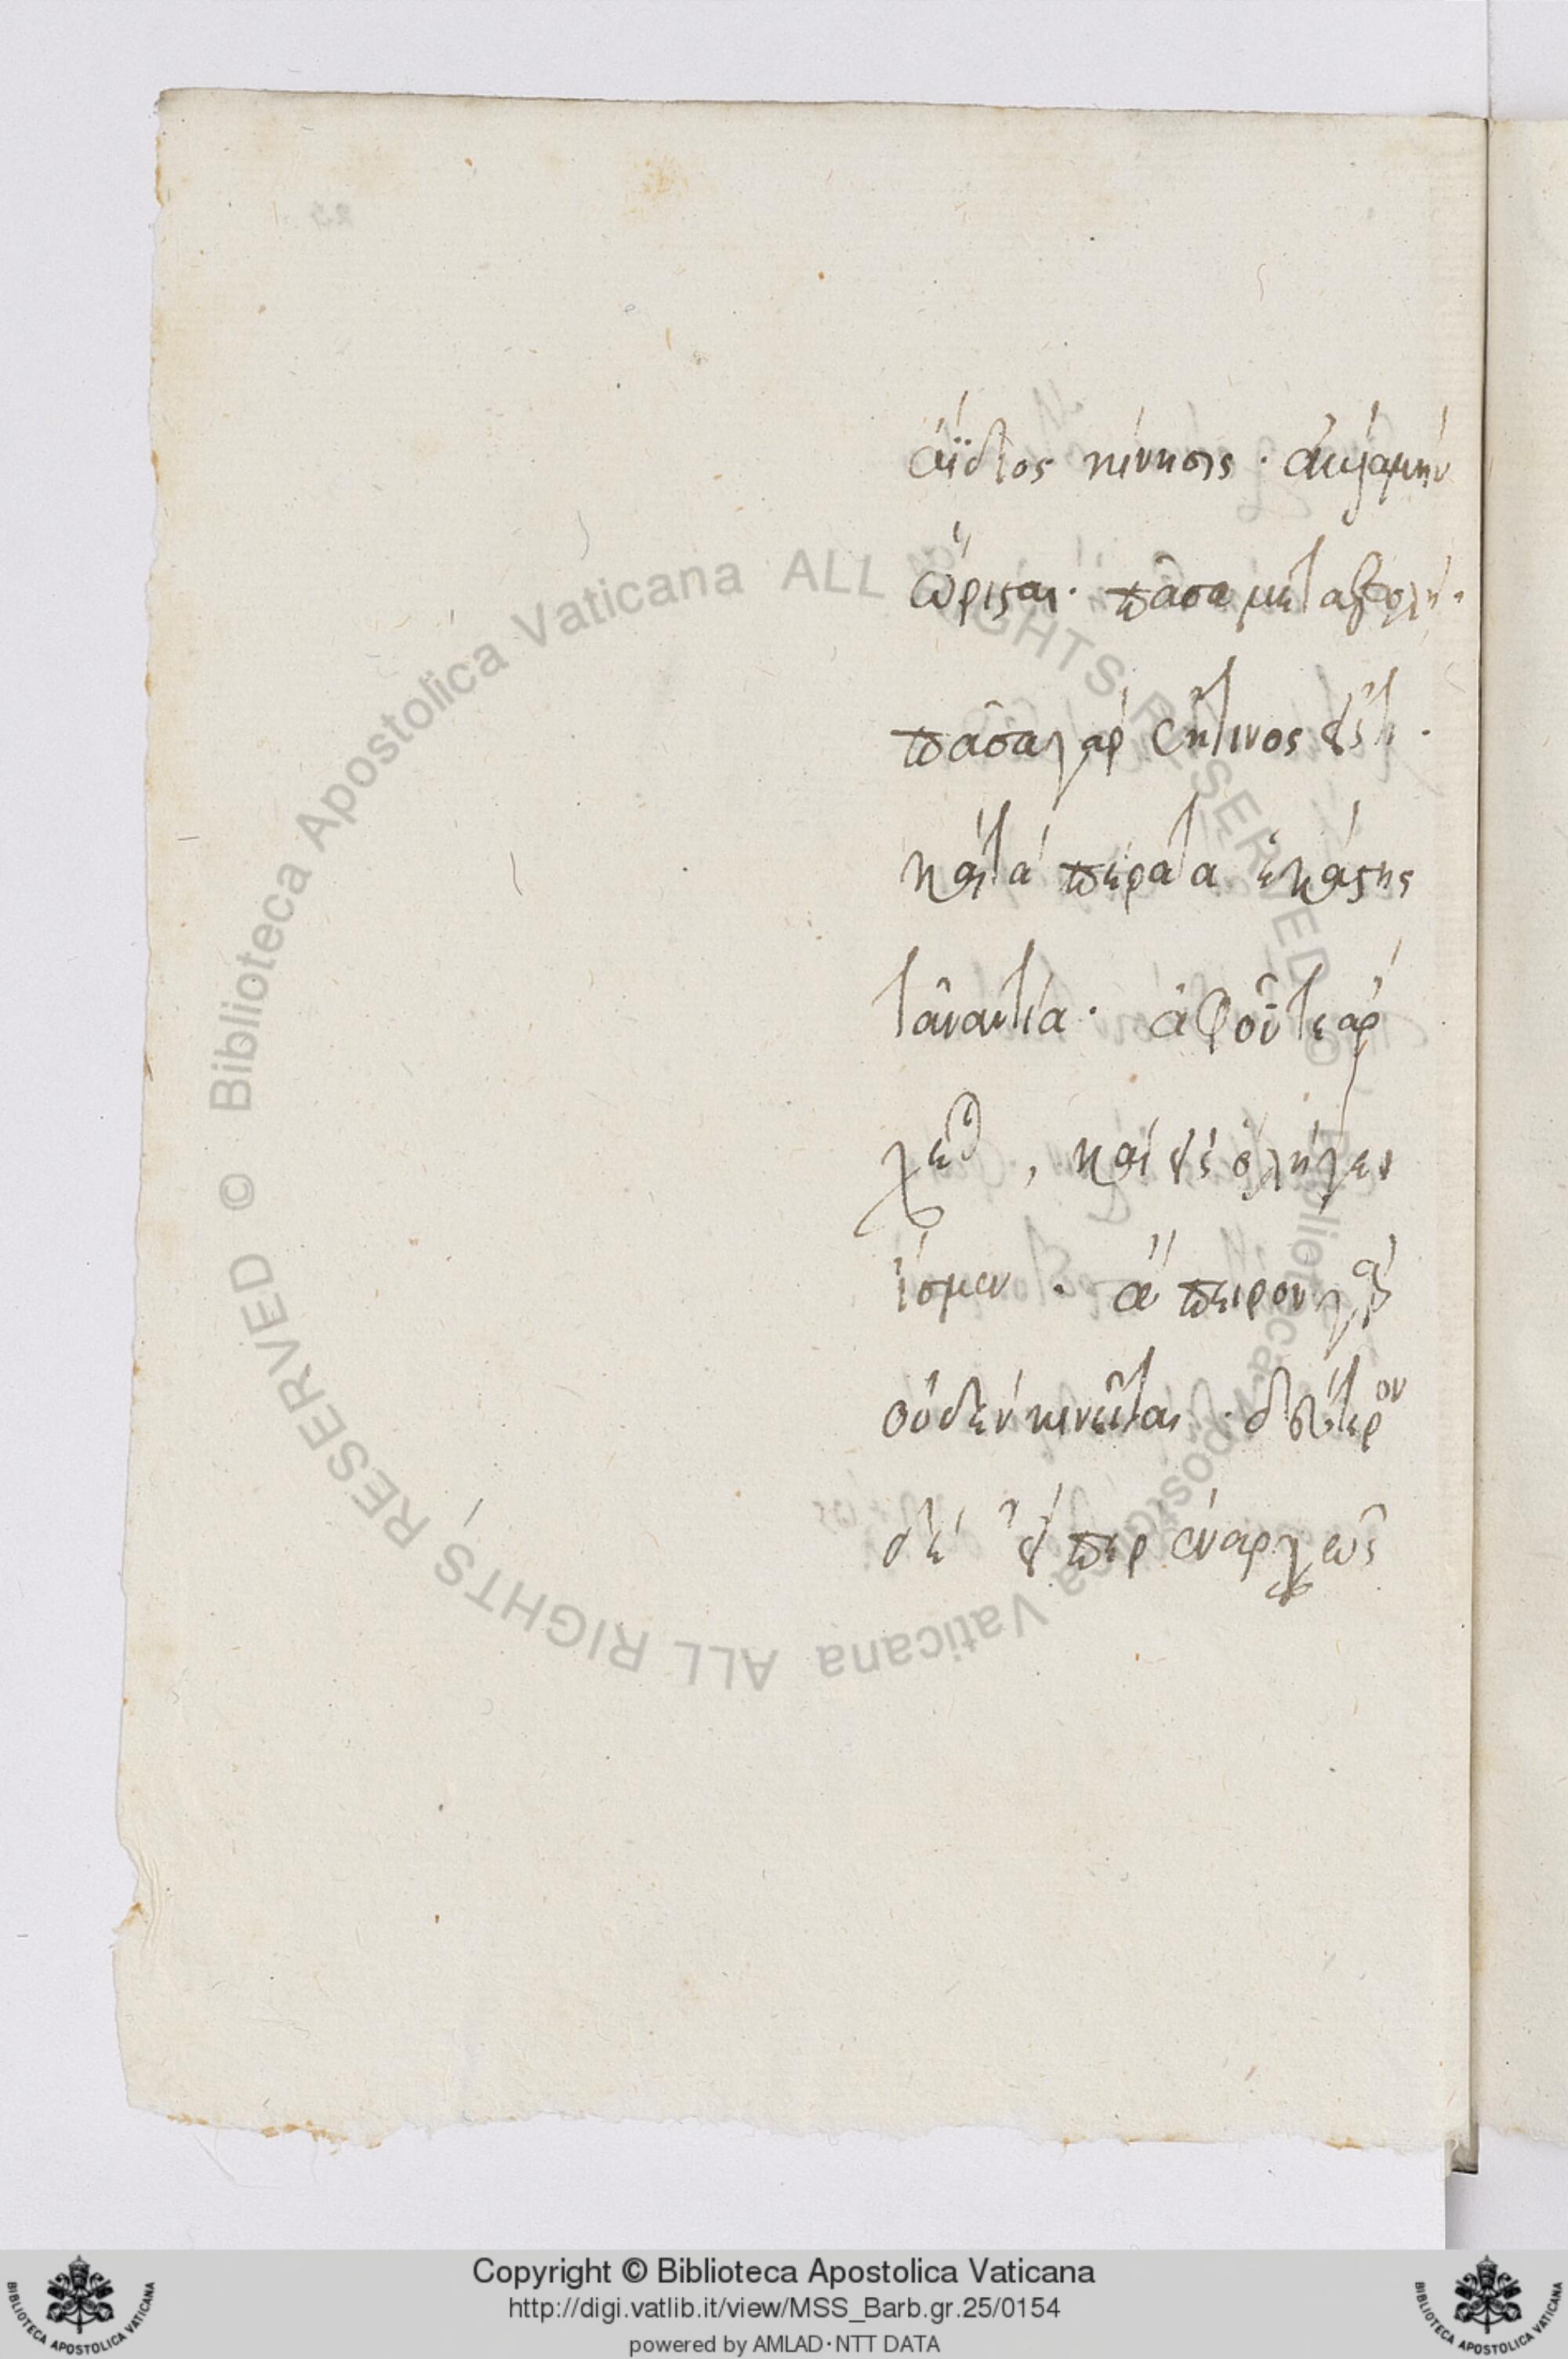 ἀΐδιος κίνησις · ἀλλὰ μὴν
ὥρισται · πᾶσα μεταβολή ·
πᾶσα γὰρ ἔκ τινος εἴς τι ·
καὶ τὰ πέρατα ἑκάστης
τἀναντία · ἀφ οὗ τε ἄρ
χεται, καὶ εἰς ὃ λήγει
ἴσμεν · ἄπειρον γὰρ
οὐδὲν κινεῖται · δεύτερον
δὲ εἴπερ ἐναργῶς
© Biblioteca Apostolica Vaticana ALL RIGHTS RESERVED © Biblioteca Apostolica Vaticana ALL RIGHTS RESERVED
Copyright © Biblioteca Apostolica Vaticana
http://digi.vatlib.it/view/MSS_Barb.gr.25/0154
powered by AMLAD·NTT DATA
BIBLIOTECA APOSTOLICA VATICANA
BIBLIOTECA APOSTOLICA VATICANA